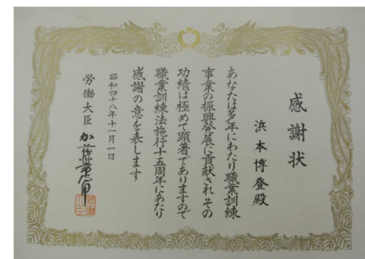 感謝状
浜本博登殿
あなたは多年にわたり職業訓練
事業の振興発展に貢献され その
功績は極めて顕著でありますので
職業訓練法施行十五周年にあたり
感謝の意を表します
昭和四十八年十一月一日
労働大臣 加藤常太郎